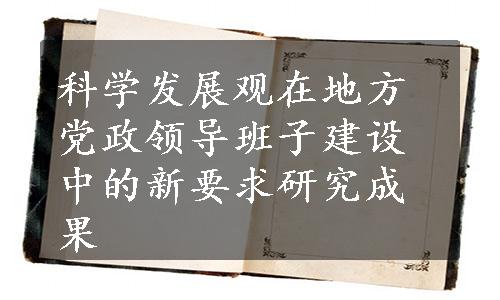 科学发展观在地方
党政领导班子建设
中的新要求研究成
果